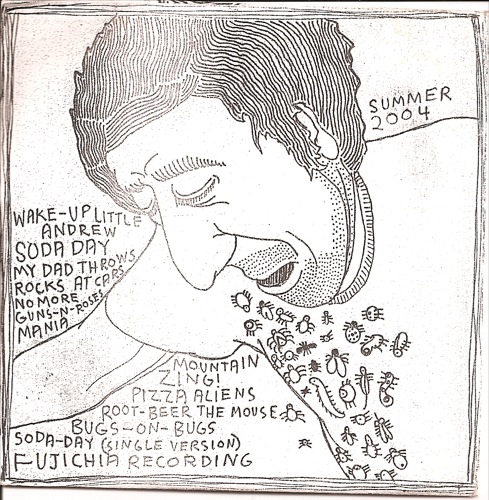 SUMMER
2004
WAKE-UP LITTLE
ANDREW
SODA DAY
MY DAD THROWS
ROCKS AT CARS
NO MORE
GUNS-N-ROSES
MANIA
MOUNTAIN
ZING!
PIZZA ALIENS
ROOT-BEER THE MOUSE
BUGS-ON-BUGS
SODA-DAY (SINGLE VERSION)
FUJICHIA RECORDING